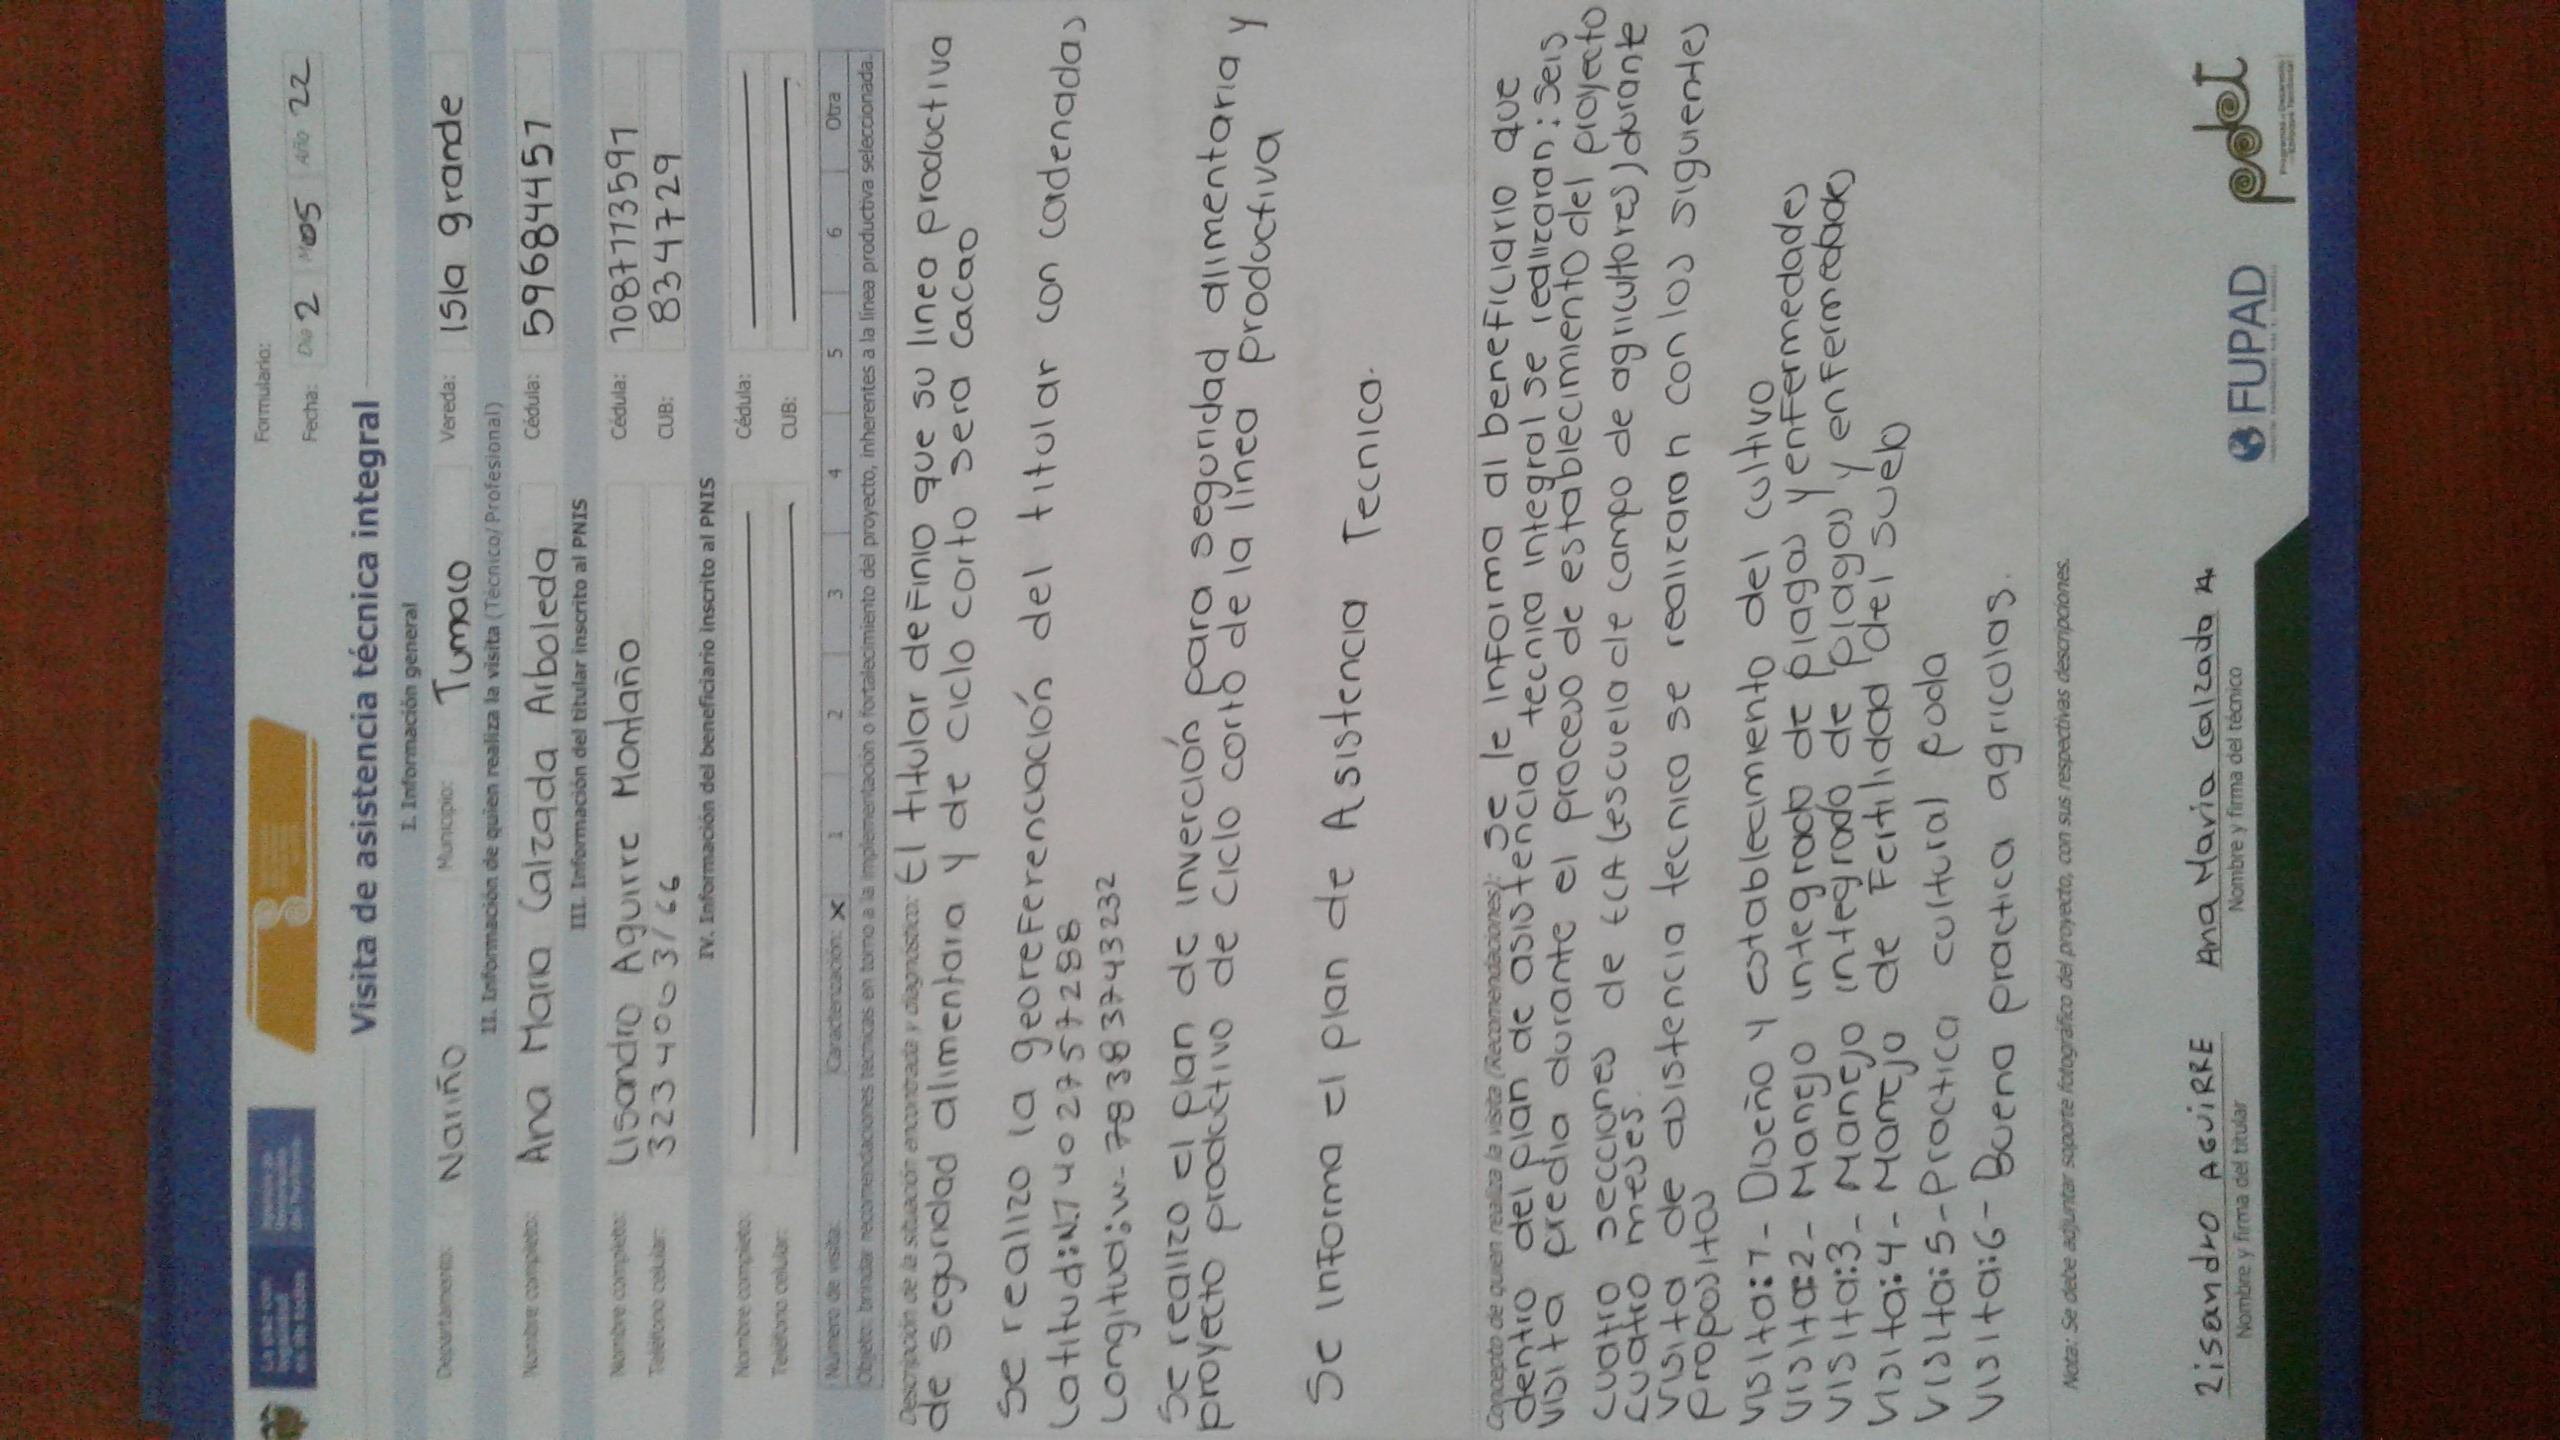 Formulario:
Fecha: Día 2 Mes 05 Año 22
Visita de asistencia técnica integral
I. Información general
Departamento: Nariño Municipio: Tumaco Vereda: Isla grande
II. Información de quien realiza la visita (Técnico/ Profesional)
Nombre completo: Ana Maria Calzada Arboleda Cédula: 59684457
III. Información del titular inscrito al PNIS
Nombre completo: Lisandro Aguirre Montaño Cédula: 1087113591
Teléfono celular: 3234063166 CUB: 834729
IV. Información del beneficiario inscrito al PNIS
Nombre completo: Cédula:
Teléfono celular: CUB:
Número de visita: Caracterización: X 1 2 3 4 5 6 Otra
Objeto: brindar recomendaciones técnicas en torno a la implementación o fortalecimiento del proyecto, inherentes a la línea productiva seleccionada.
Descripción de la situación encontrada y diagnóstico: El titular definio que su linea productiva
de seguridad alimentaria y de ciclo corto sera cacao
Se realizo la georeferencación del titular con cordenadas
Latitud: N. 1740275 7288
Longitud: w- 7838 3743232
Se realizo el plan de inverción para seguridad alimentaria y
proyecto productivo de ciclo corto de la linea productiva
Se informa el plan de Asistencia Tecnica.
Concepto de quien realiza la visita (Recomendaciones): Se le informa al beneficiario que
dentro del plan de asistencia tecnica integral se realizaran: Seis
visita predia durante el proceso de establecimiento del proyecto
cuatro secciones de ECA (escuela de campo de agricultores) durante
cuatro meses.
visita de asistencia tecnica se realizaran con los siguientes
propositos
visita: 1- Diseño y establecimiento del cultivo
visita: 2- Manejo integrado de plagas y enfermedades
visita: 3- Manejo integrado de plagas y enfermedades
visita: 4- Manejo de Fertilidad del suelo
visita: 5- Practica cultural poda
visita: 6- Buena practica agricolas.
Nota: Se debe adjuntar soporte fotográfico del proyecto, con sus respectivas descripciones.
Lisandro AGUIRRE Ana Maria Calzada A.
Nombre y firma del titular Nombre y firma del técnico
FUPAD
pdet